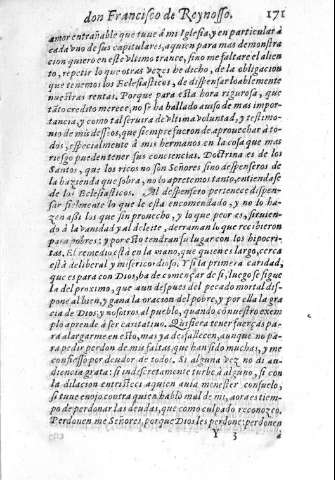 don Francisco de Reynosso. 171
amor entrañable que tuue à mi Iglesia, y en particular à
cada vno de sus capitulares, a quien para mas demonstra
cion quiero en este vltimo trance, sino me faltare el alien
to, repetir lo que otras vezes he dicho, de la obligacion
que tenemos los Eclesiasticos, de dispensar loablemente
nuestras rentas. Porque para esta hora rigurosa, que
tãto credito merece, no se ha hallado auiso de mas impor
tancia, y como tal seruira de vltima voluntad, y testimo
nio de mis desseos, que siempre fueron de aprouechar a to-
dos, especialmente à mis hermanos en la cosa que mas
riesgo pueden tener sus conciencias. Doctrina es de los
Santos, que los ricos no son Señores sino despenseros de
la hazienda que sobra, no lo apretemos tanto, entiendase
de los Eclesiasticos. Al despensero pertenece dispen-
sar fielmente lo que le esta encomendado, y no lo ha-
zen assi los que sin prouecho, y lo que peor es, siruien-
do à la vanidad y al deleite, derraman lo que recibieron
para pobres; y por esto tendran su lugar con los hipocri-
tas. El remedio està en la mano, que quien es largo, cerca
està de liberal y misericordioso. Y si la primera caridad,
que es para con Dios, ha de començar de si, luego se sigue
la del proximo, que aun despues del pecado mortal dis-
pone al bien, y gana la oracion del pobre, y por ella la gra
cia de Dios y nosotros al pueblo, quando con nuestro exem
plo aprende à ser caritatiuo. Quisiera tener fuerças pa-
ra alargarme en esto, mas ya desfallecen, aunque no pa-
ra pedir perdon de mis faltas, que han sido muchas, y me
confiesso por deudor de todos. Si alguna vez no di au-
diencia grata: si indiscretamente turbè à alguno, si con
la dilacion entristeci a quien auia menester consuelo,
si tuue enojo contra quien hablò mal de mi, aora es tiem-
po de perdonar las deudas, que como culpado reconozco.
Perdonen me Señores, porque Dios les perdone: perdonen
Y 3 a